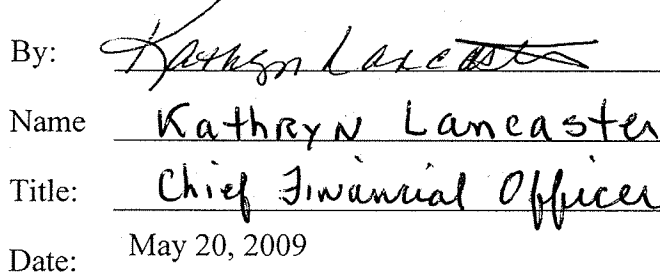 By: Kathryn Lancaster
Name Kathryn Lancaster
Title: Chief Financial Officer
Date: May 20, 2009